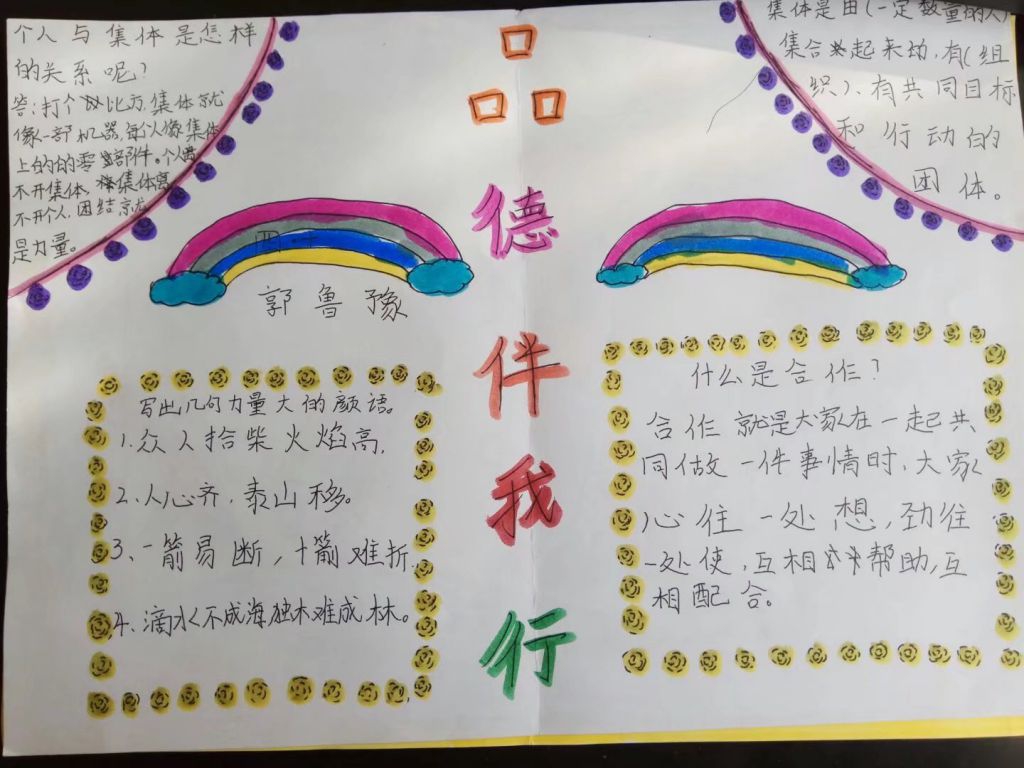 个人与集体是怎样
的关系呢？
答：打个比方，集体就
像一部机器，每个人像集体
上的的零部件。个人离
不开集体，集体离
不开个人，团结就
是力量。
集体是由(一定数量的人)
集合起来的，有(组
织)、有共同目标
和行动的
团体。
品
德
伴
我
行
四
郭鲁豫
写出几句力量大的颜语。
1.众人拾柴火焰高，
2、人心齐，泰山移。
3、一箭易断，十箭难折，
4、滴水不成海，独木难成林。
什么是合作？
合作就是大家在一起共
同做一件事情时，大家
心往一处想，劲往
一处使，互相帮助，互
相配合。